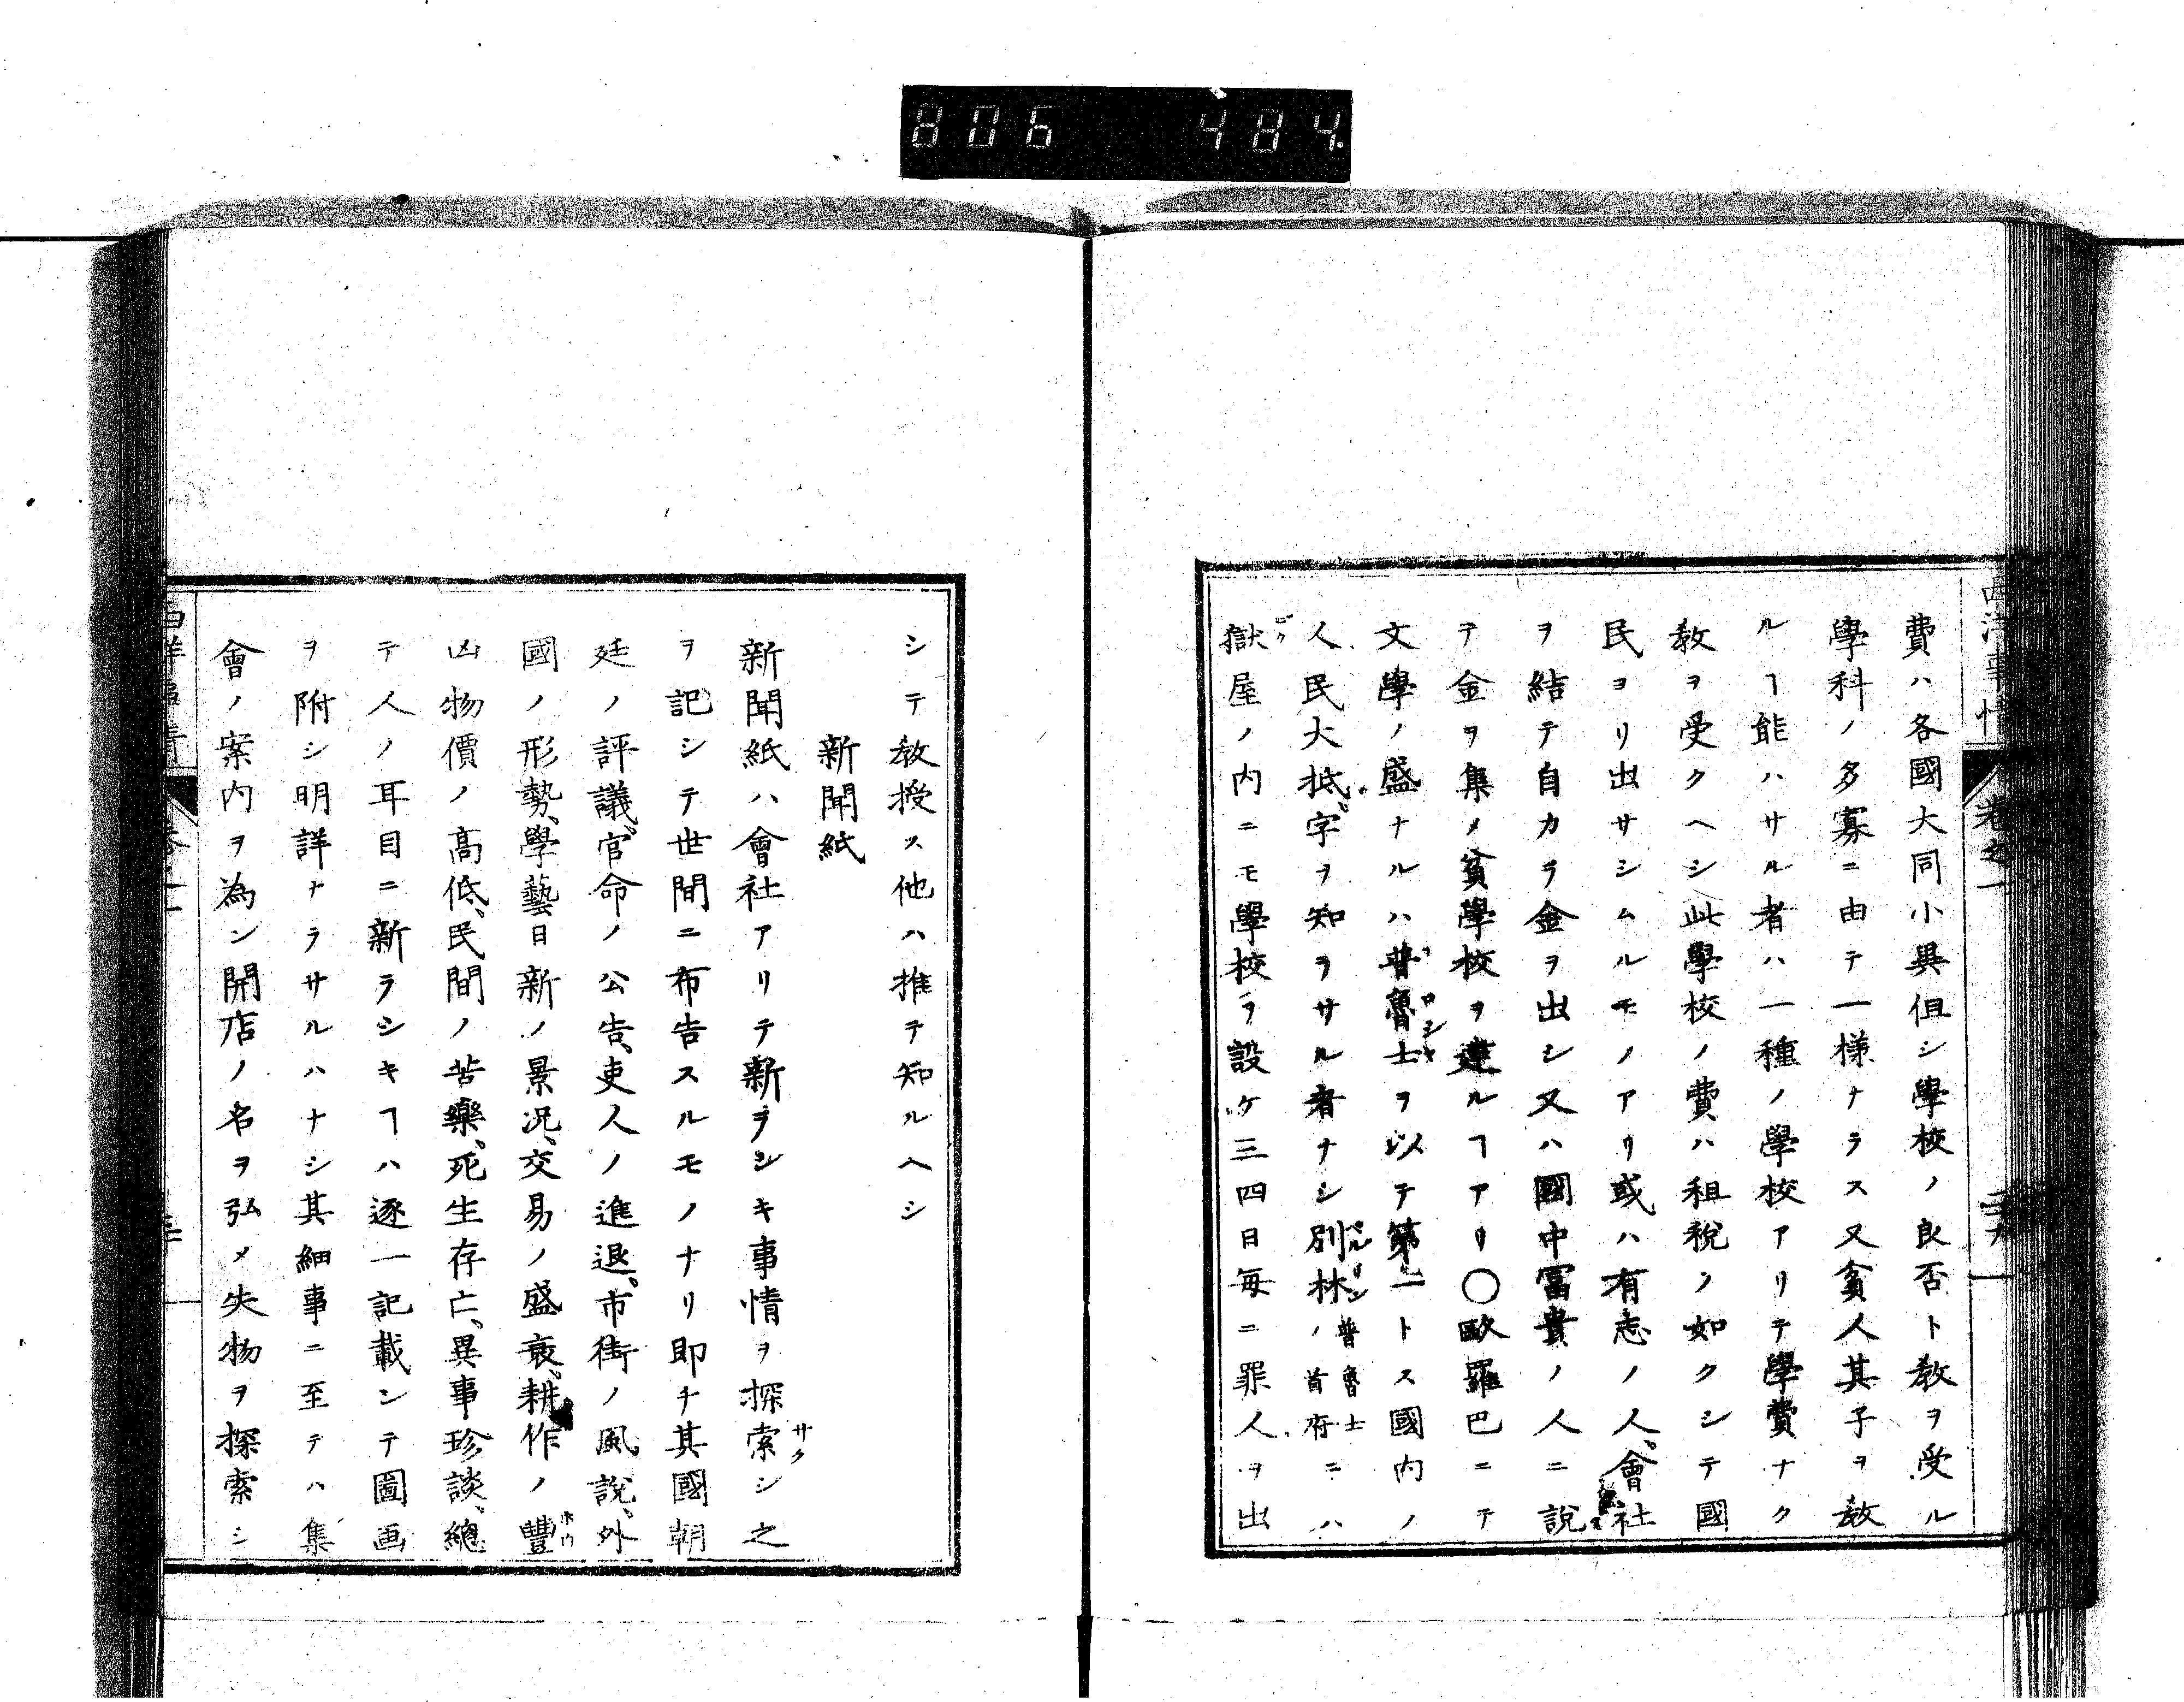 806 484.
西洋事情 卷之一 二十九
費ハ各國大同小異但シ學校ノ良否ト教ヲ受ル
學科ノ多寡ニ由テ一様ナラス又貧人其子ヲ教
ルヿ能ハサル者ハ一種ノ學校アリテ學費ナク
教ヲ受クヘシ此學校ノ費ハ租税ノ如クシテ國
民ヨリ出サシムルモノアリ或ハ有志ノ人、會社
ヲ結テ自カラ金ヲ出シ又ハ國中冨貴ノ人ニ説
テ金ヲ集メ貧學校ヲ建ルヿアリ〇歐羅巴ニテ
文學ノ盛ナルハ普魯士ヲ以テ第一トス國内ノ
人民大抵字ヲ知ラサル者ナシ別林ベルリン普魯士ノ首府ニハ
獄ゴク屋ノ内ニモ學校ヲ設ケ三四日毎ニ罪人ヲ出
シテ教授ス他ハ推テ知ルヘシ
新聞紙
新聞紙ハ會社アリテ新ラシキ事情ヲ探索サクシ之
ヲ記シテ世間ニ布告スルモノナリ即チ其國朝
廷ノ評議、官命ノ公告、吏人ノ進退、市街ノ風說、外
國ノ形勢、學藝日新ノ景况、交易ノ盛衰、耕作ノ豐ホウ
凶物價ノ高低、民間ノ苦樂、死生存亡、異事珍談、總
テ人ノ耳目ニ新ラシキヿハ逐一記載シテ圖画
ヲ附シ明詳ナラサルハナシ其細事ニ至テハ集
會ノ案内ヲ為シ開店ノ名ヲ弘メ失物ヲ探索シ